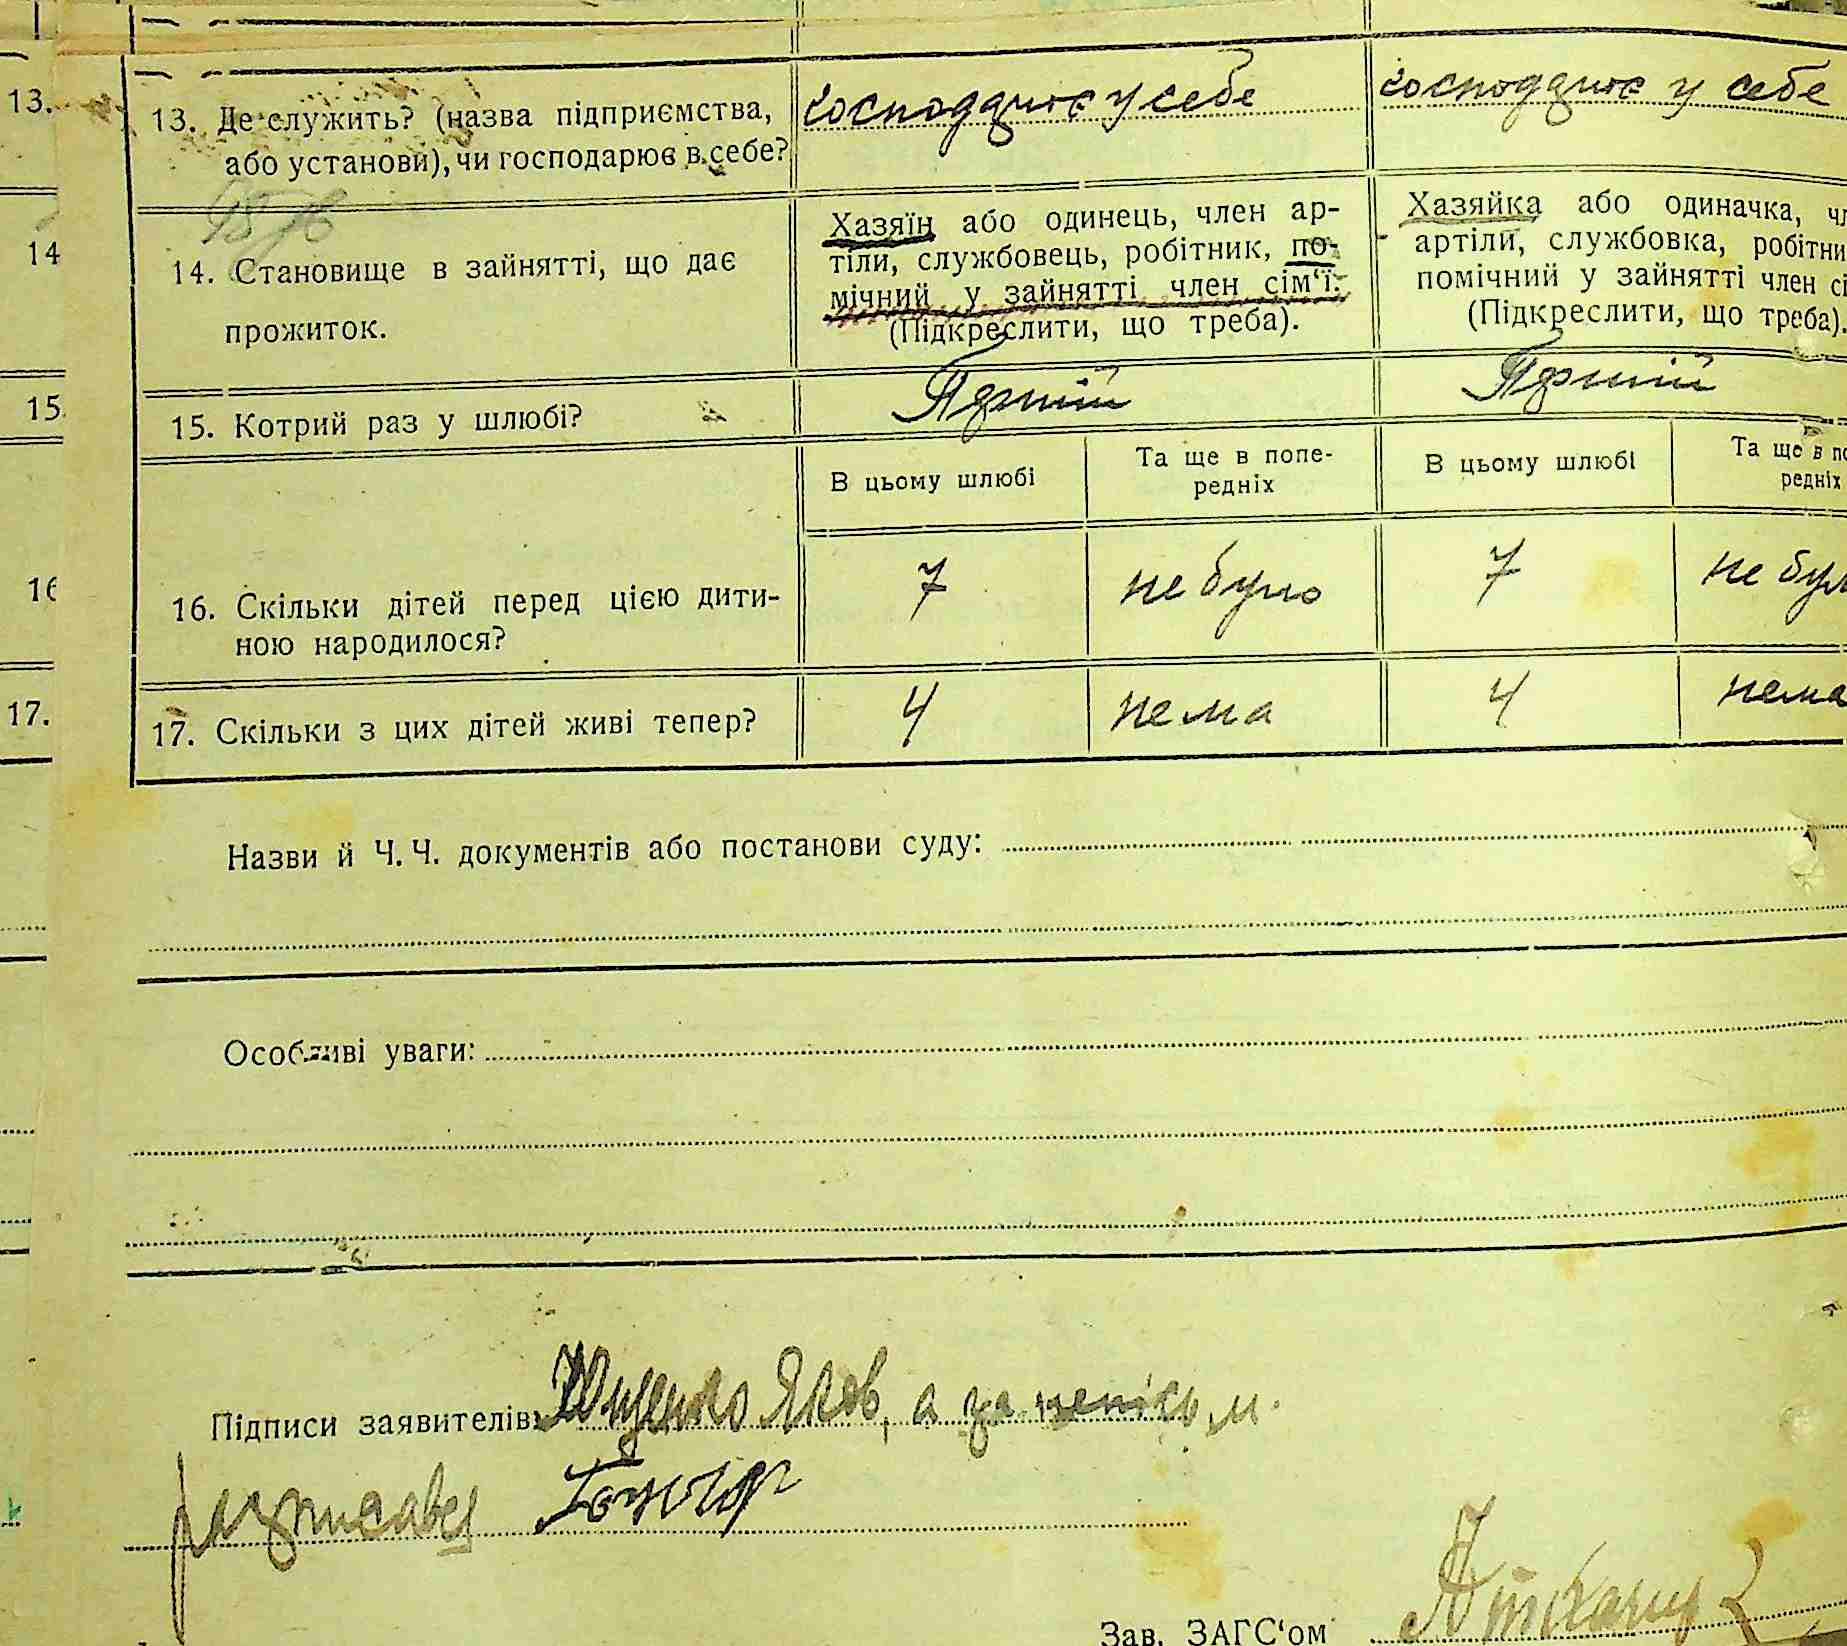 13.
13. Де служить? (назва підприємства,
або установи), чи господарює в себе?
господарює у себе
господарює у себе
14
14. Становище в зайнятті, що дає
прожиток.
Хазяїн або одинець, член ар-
тіли, службовець, робітник, по-
мічний у зайнятті член сім‘ї.
(Підкреслити, що треба).
Хазяйка або одиначка, чл
артіли, службовка, робітни
помічний у зайнятті член сі
(Підкреслити, що треба).
15
15. Котрий раз у шлюбі?
Перший
Перший
В цьому шлюбі
Та ще в попе-
редніх
В цьому шлюбі
Та ще в по
редніх
16
16. Скільки дітей перед цією дити-
ною народилося?
7
не було
7
не бул
17.
17. Скільки з цих дітей живі тепер?
4
нема
4
нема
Назви й Ч. Ч. документів або постанови суду:
Особливі уваги:
Підписи заявителів: Ющенко Яков, а за
розписався
Зав. ЗАГС‘ом